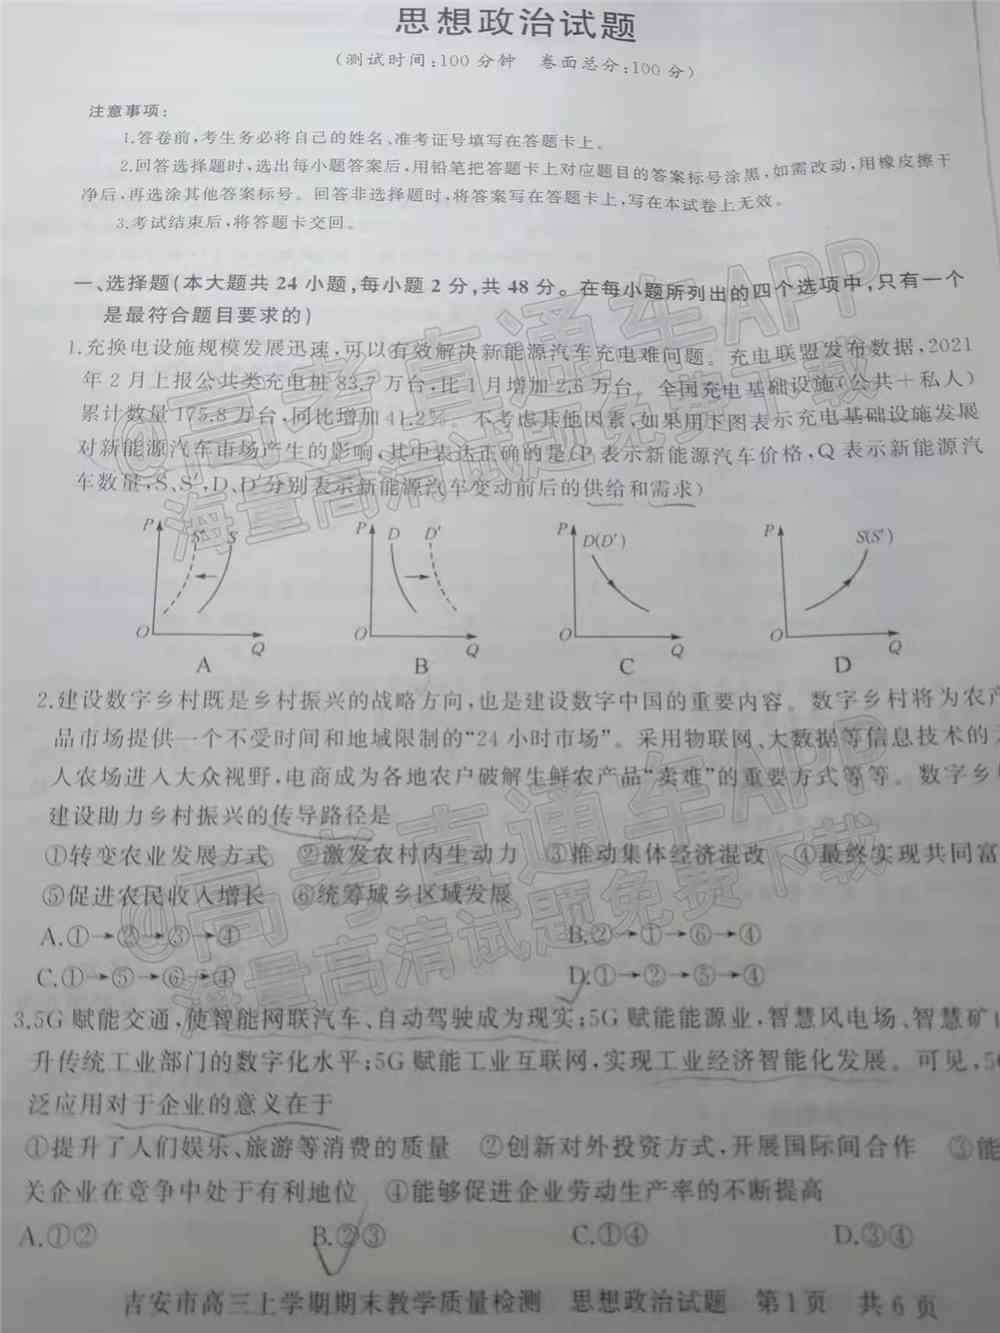 思想政治试题
(测试时间:100分钟 卷面总分:100分)
注意事项:
1.答卷前,考生务必将自己的姓名、准考证号填写在答题卡上。
2.回答选择题时,选出每小题答案后,用铅笔把答题卡上对应题目的答案标号涂黑,如需改动,用橡皮擦干
净后,再选涂其他答案标号。回答非选择题时,将答案写在答题卡上,写在本试卷上无效。
3.考试结束后,将答题卡交回。
一、选择题(本大题共24小题,每小题2分,共48分。在每小题所列出的四个选项中,只有一个
是最符合题目要求的)
1.充换电设施规模发展迅速,可以有效解决新能源汽车充电难问题。充电联盟发布数据,2021
年2月上报公共类充电桩83.7万台,比1月增加2.6万台。全国充电基础设施(公共+私人)
累计数量175.8万台,同比增加41.2%。不考虑其他因素,如果用下图表示充电基础设施发展
对新能源汽车市场产生的影响,其中表达正确的是(P表示新能源汽车价格,Q表示新能源汽
车数量,S、S′,D、D′分别表示新能源汽车变动前后的供给和需求)
P S′ S O Q A
P D D′ O Q B
P D(D′) O Q C
P S(S′) O Q D
2.建设数字乡村既是乡村振兴的战略方向,也是建设数字中国的重要内容。数字乡村将为农产
品市场提供一个不受时间和地域限制的“24小时市场”。采用物联网、大数据等信息技术的
人农场进入大众视野,电商成为各地农户破解生鲜农产品“卖难”的重要方式等等。数字乡
建设助力乡村振兴的传导路径是
①转变农业发展方式 ②激发农村内生动力 ③推动集体经济混改 ④最终实现共同富
⑤促进农民收入增长 ⑥统筹城乡区域发展
A.①→②→③→④ B.②→①→⑥→④
C.①→⑤→⑥→④ D.①→②→⑤→④
3.5G赋能交通,使智能网联汽车、自动驾驶成为现实;5G赋能能源业,智慧风电场、智慧矿
升传统工业部门的数字化水平;5G赋能工业互联网,实现工业经济智能化发展。可见,5
泛应用对于企业的意义在于
①提升了人们娱乐、旅游等消费的质量 ②创新对外投资方式,开展国际间合作 ③能
关企业在竞争中处于有利地位 ④能够促进企业劳动生产率的不断提高
A.①② B.②③ C.①④ D.③④
吉安市高三上学期期末教学质量检测 思想政治试题 第1页 共6页
@高考直通车APP
海量高清试题免费下载
@高考直通车APP
海量高清试题免费下载